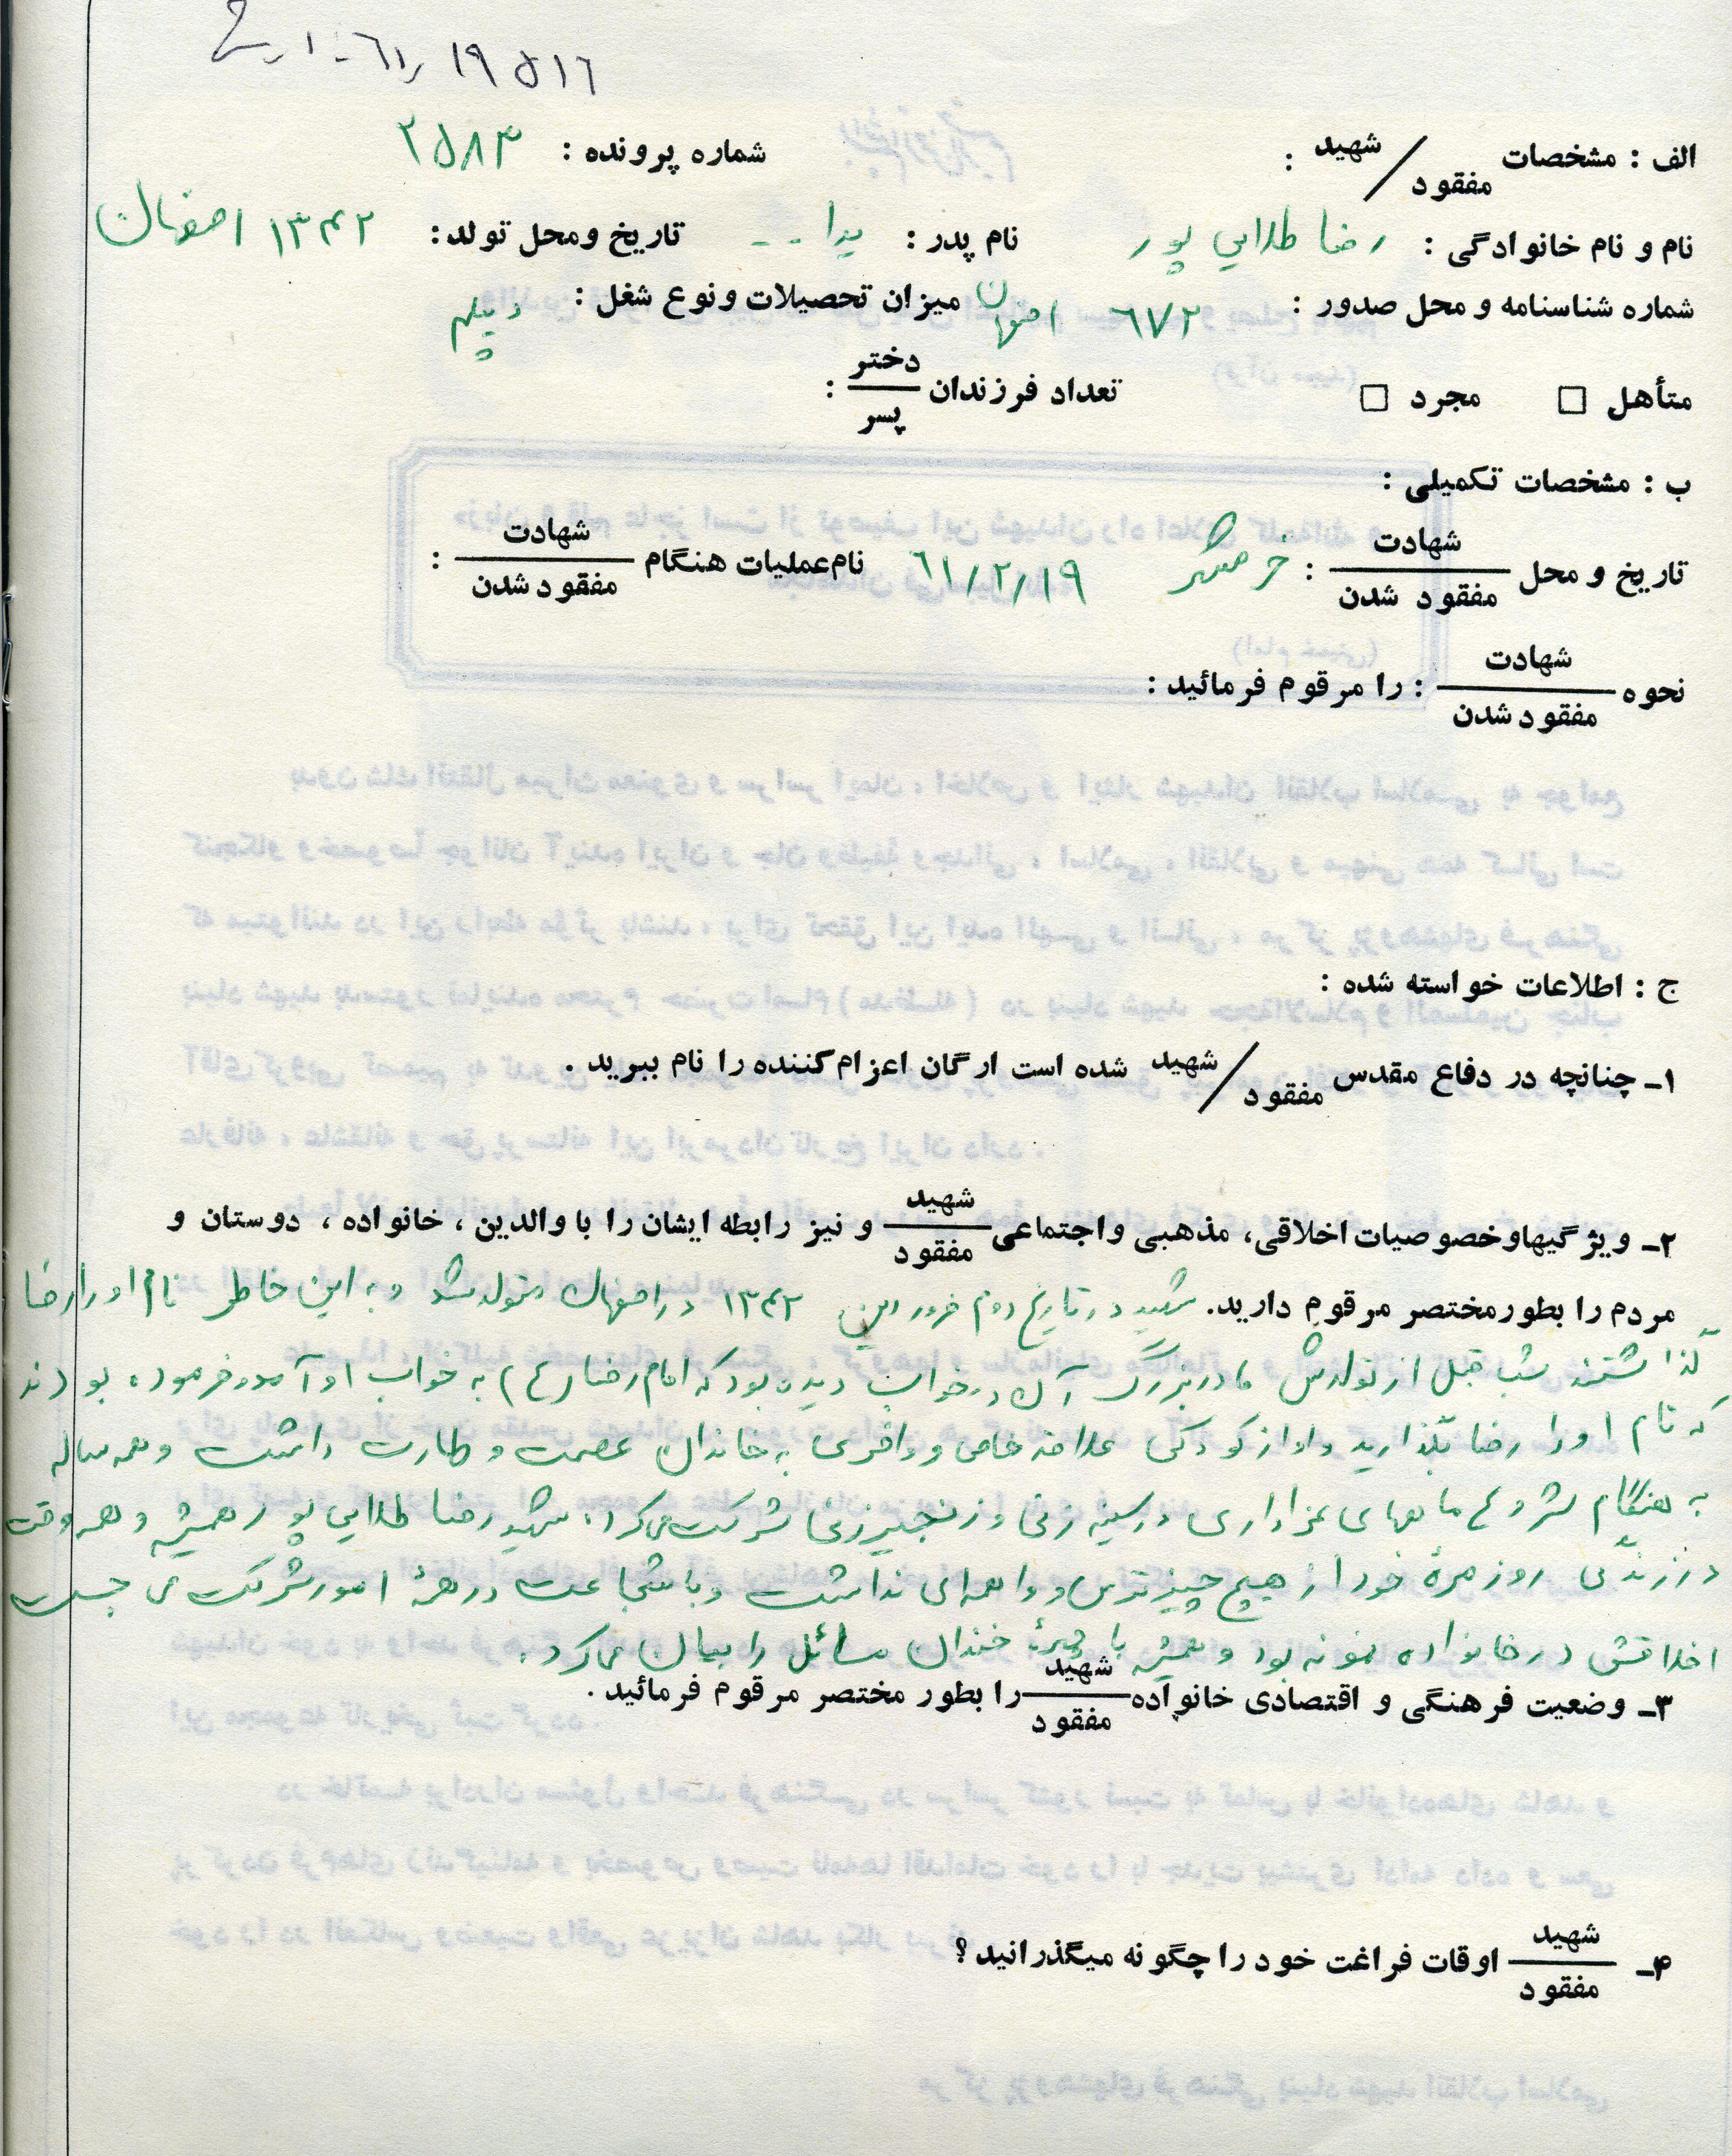 ۱۹۵۱۶
الف : مشخصات شهید / مفقود : شماره پرونده : ۲۵۸۳
نام و نام خانوادگی : رضا طلایی پور نام پدر : یدا... تاریخ ومحل تولد: ۱۳۴۲ اصفهان
شماره شناسنامه و محل صدور : ۶۷۲ اصفهان میزان تحصیلات و نوع شغل : دیپلم
متأهل □ مجرد □ تعداد فرزندان دختر / پسر :
ب : مشخصات تکمیلی :
تاریخ و محل شهادت / مفقود شدن : خرمشهر ۶۱/۲/۱۹ نام عملیات هنگام شهادت / مفقود شدن :
نحوه شهادت / مفقود شدن : را مرقوم فرمائید :
ج : اطلاعات خواسته شده :
۱ـ چنانچه در دفاع مقدس شهید / مفقود شده است ارگان اعزام کننده را نام ببرید .
۲ـ ویژگیها وخصوصیات اخلاقی، مذهبی واجتماعی شهید / مفقود و نیز رابطه ایشان را با والدین ، خانواده ، دوستان و
مردم را بطور مختصر مرقوم دارید. شهید در تاریخ دوم فروردین ۱۳۴۲ در اصفهان متولد شد و به این خاطر نام او را رضا
گذاشتند شب قبل از تولدش مادربزرگ آن در خواب دیده بود که امام رضا (ع) به خواب او آمده و فرموده بودند
که نام او را رضا بگذارید و او از کودکی علاقه خاص و وافری به خاندان عصمت و طهارت داشت و همه ساله
به هنگام شروع ماههای عزاداری در سینه زنی و زنجیرزنی شرکت می کرد. شهید رضا طلایی پور همیشه و همه وقت
در زندگی روزمرهٔ خود از هیچ چیز ترس و واهمه ای نداشت و با شجاعت در همهٔ امور شرکت می جست
اخلاقش در خانواده نمونه بود و همیشه با چهرهٔ خندان مسائل را بیان می کرد.
۳ـ وضعیت فرهنگی و اقتصادی خانواده شهید / مفقود را بطور مختصر مرقوم فرمائید .
۴ـ شهید / مفقود اوقات فراغت خود را چگونه میگذرانید ؟